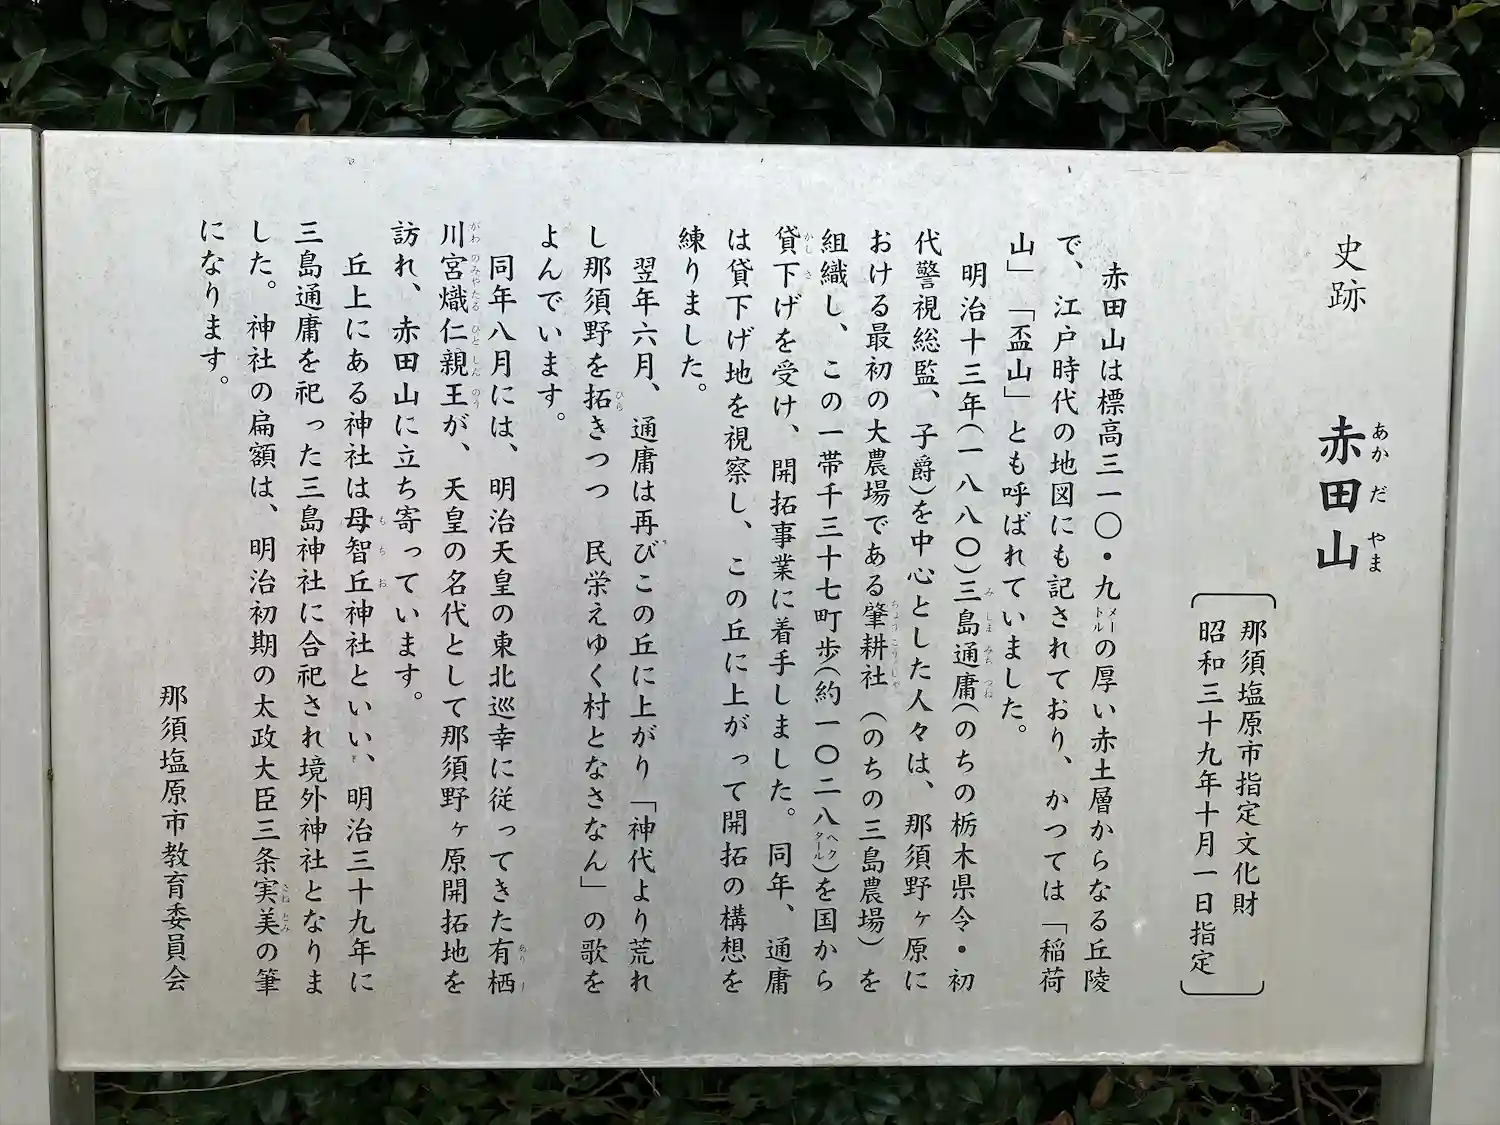 史跡 赤田山
那須塩原市指定文化財
昭和三十九年十月一日指定
赤田山は標高三一〇・九メートルの厚い赤土層からなる丘陵
で、江戸時代の地図にも記されており、かつては「稲荷
山」「盃山」とも呼ばれていました。
明治十三年(一八八〇)三島通庸(のちの栃木県令・初
代警視総監、子爵)を中心とした人々は、那須野ヶ原に
おける最初の大農場である肇耕社(のちの三島農場)を
組織し、この一帯千三十七町歩(約一〇二八ヘクタール)を国から
貸下げを受け、開拓事業に着手しました。同年、通庸
は貸下げ地を視察し、この丘に上がって開拓の構想を
練りました。
翌年六月、通庸は再びこの丘に上がり「神代より荒れ
し那須野を拓きつつ 民栄えゆく村となさなん」の歌を
よんでいます。
同年八月には、明治天皇の東北巡幸に従ってきた有栖
川宮熾仁親王が、天皇の名代として那須野ヶ原開拓地を
訪れ、赤田山に立ち寄っています。
丘上にある神社は母智丘神社といい、明治三十九年に
三島通庸を祀った三島神社に合祀され境外神社となりま
した。神社の扁額は、明治初期の太政大臣三条実美の筆
になります。
那須塩原市教育委員会